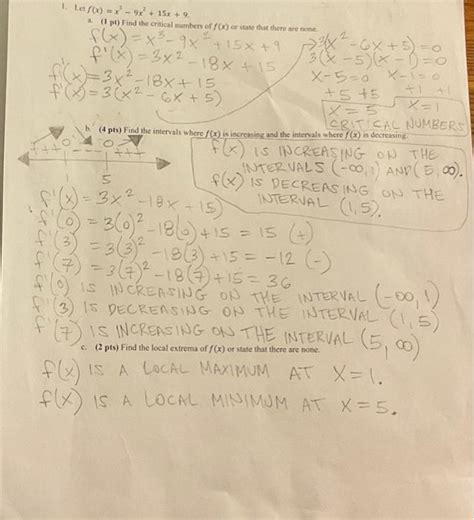 1. Let f(x) = x³ - 9x² + 15x + 9.
a. (1 pt) Find the critical numbers of f(x) or state that there are none.
f(x) = x³ - 9x² + 15x + 9
f'(x) = 3x² - 18x + 15
f'(x) = 3x² - 18x + 15
f'(x) = 3(x² - 6x + 5)
→ 3(x² - 6x + 5) = 0
3(x - 5)(x - 1) = 0
x - 5 = 0 x - 1 = 0
+5 +5 +1 +1
x = 5 x = 1
CRITICAL NUMBERS
b. (4 pts) Find the intervals where f(x) is increasing and the intervals where f(x) is decreasing.
+++ 0 --- 0 +++
1 5
f(x) IS INCREASING ON THE
INTERVALS (-∞, 1) AND (5, ∞).
f(x) IS DECREASING ON THE
INTERVAL (1, 5).
f'(x) = 3x² - 18x + 15)
f'(0) = 3(0)² - 18(0) + 15 = 15 (+)
f'(3) = 3(3)² - 18(3) + 15 = -12 (-)
f'(7) = 3(7)² - 18(7) + 15 = 36
f'(0) IS INCREASING ON THE INTERVAL (-∞, 1)
f'(3) IS DECREASING ON THE INTERVAL (1, 5)
f'(7) IS INCREASING ON THE INTERVAL (5, ∞)
c. (2 pts) Find the local extrema of f(x) or state that there are none.
f(x) IS A LOCAL MAXIMUM AT X=1.
f(x) IS A LOCAL MINIMUM AT X=5.